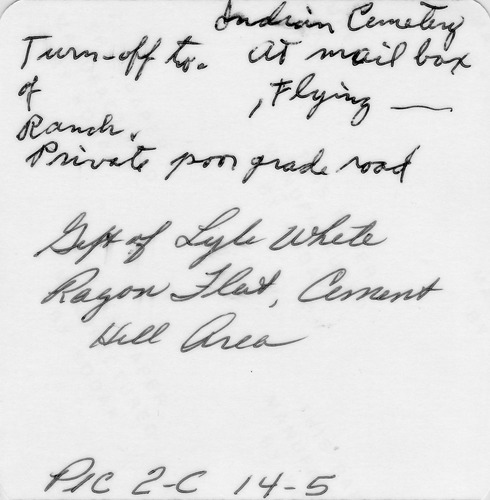 Indian Cemetery
Turn-off to. At mail box
of , Flying —
Ranch.
Private poor grade road
Gift of Lyle White
Ragon Flat, Cement
Hill Area
PIC 2-C 14-5